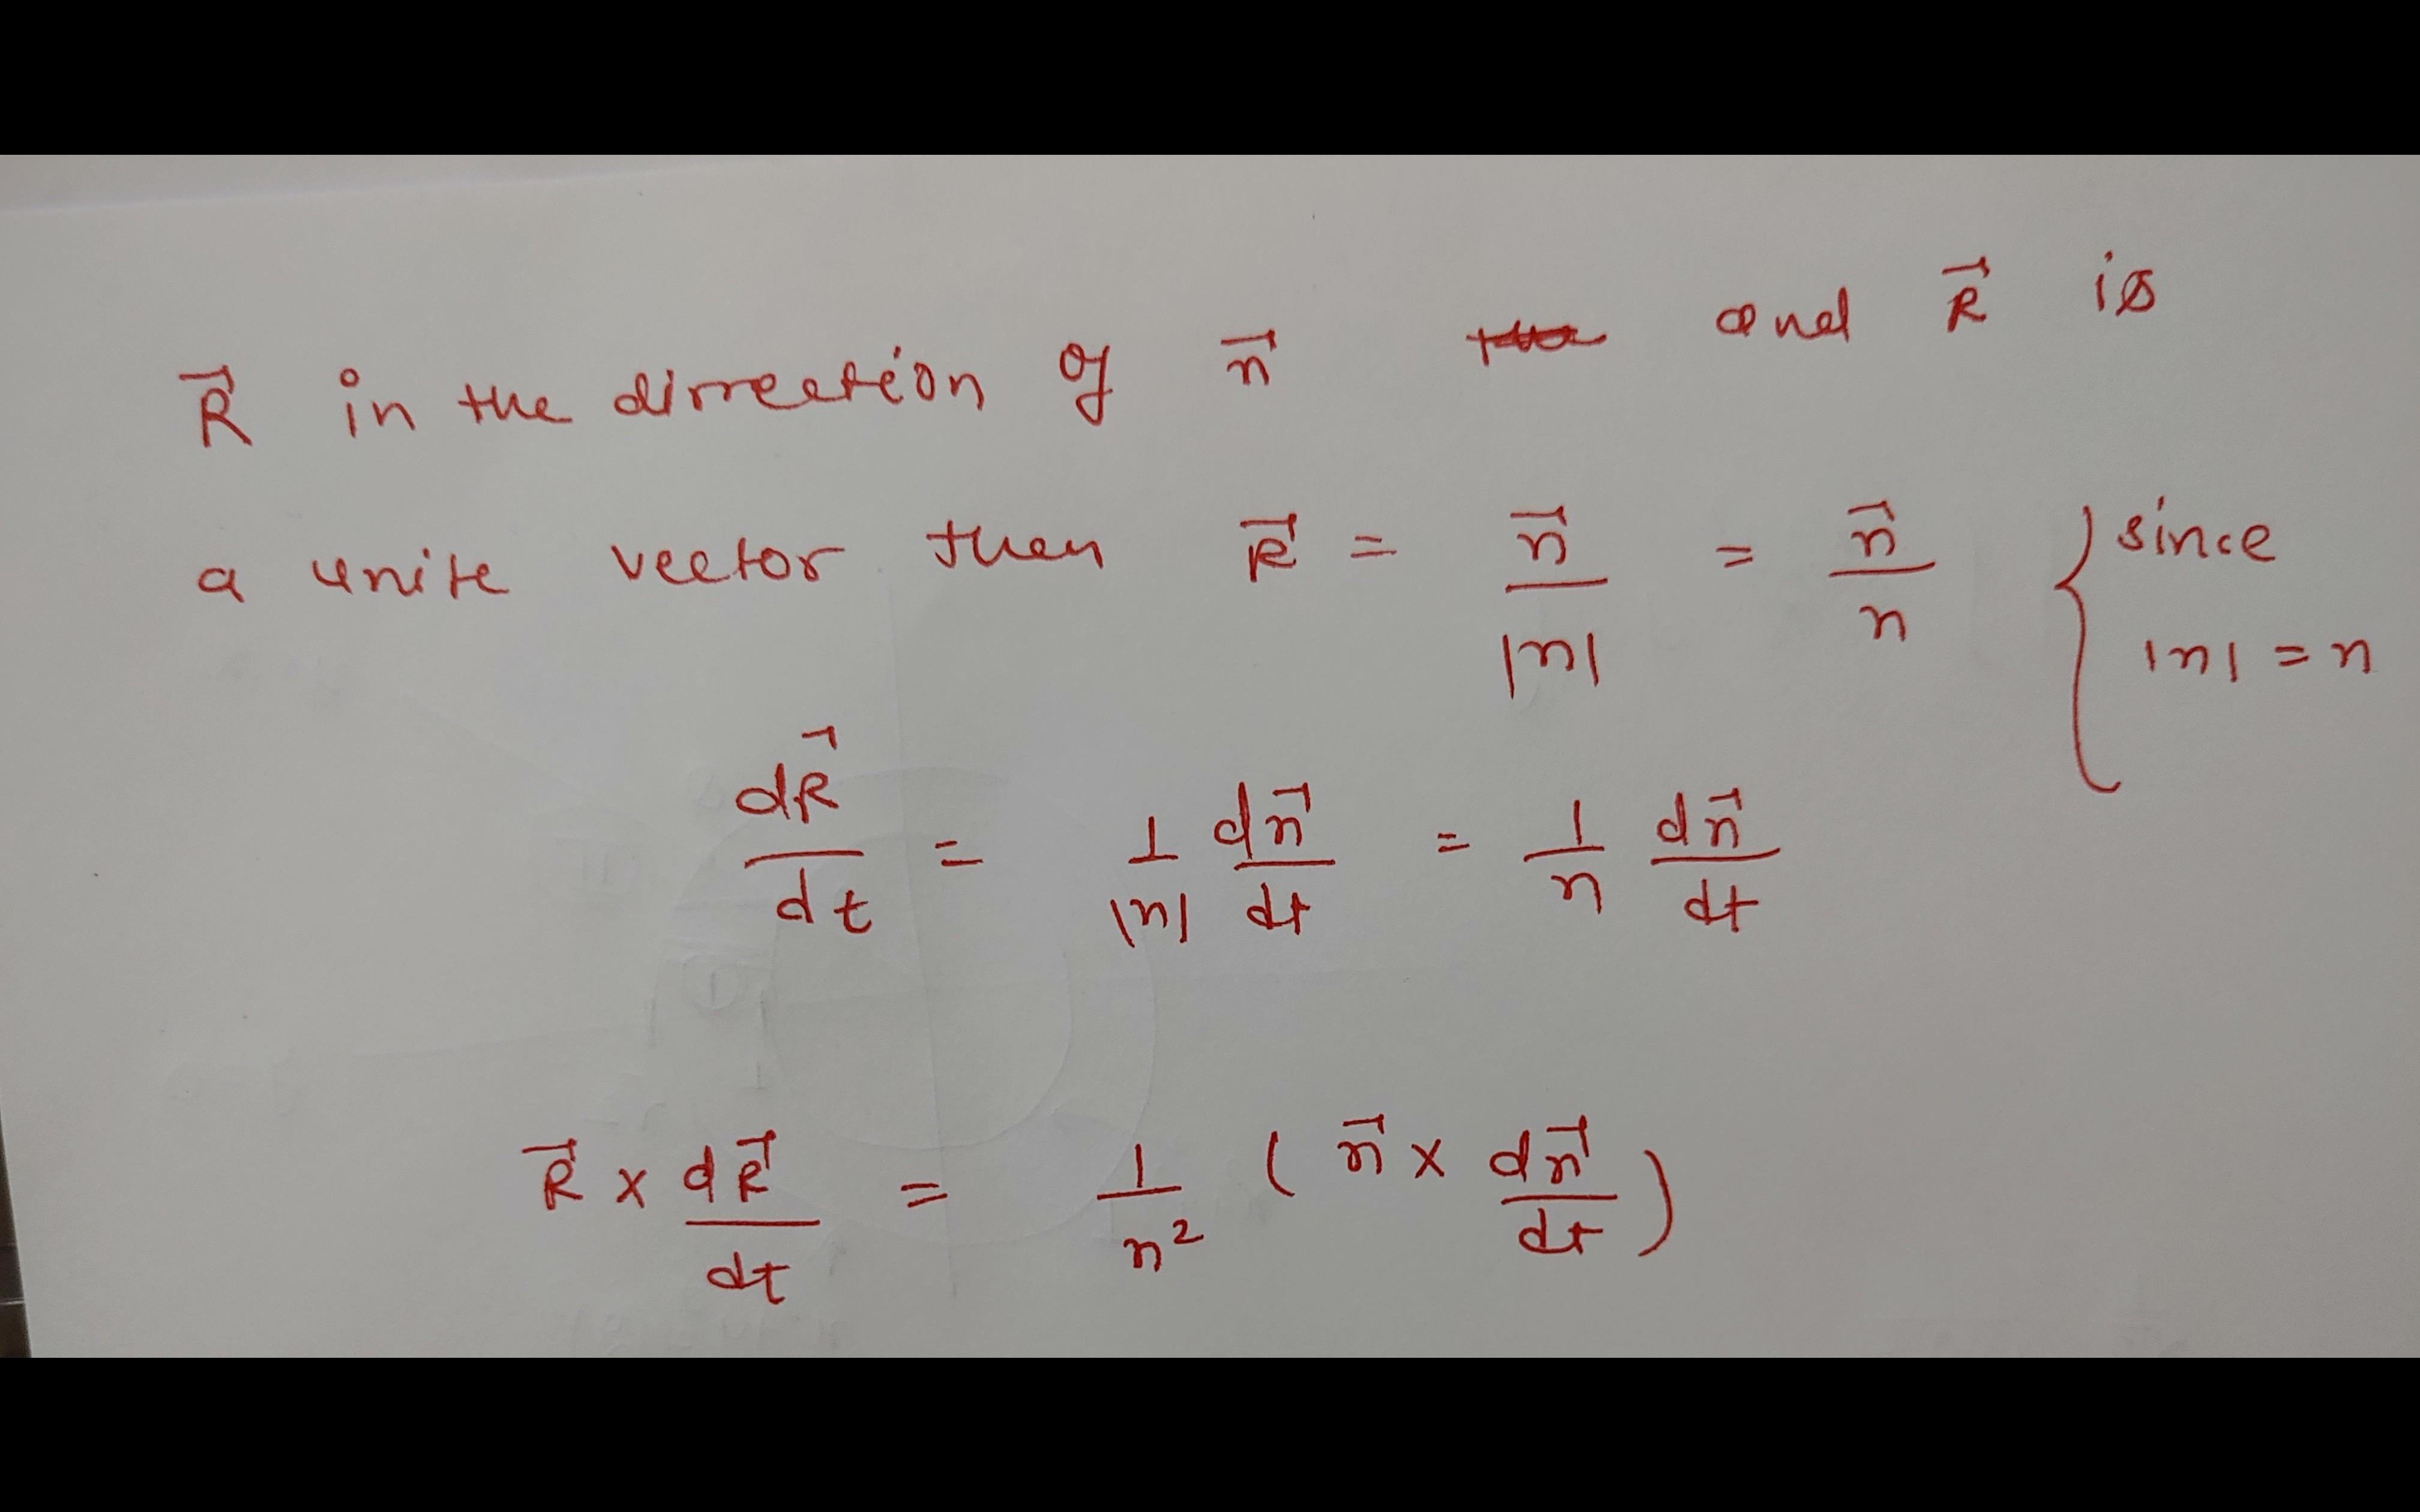 R⃗ in the dirrection of n⃗ and R⃗ is
a unite vector then R⃗ = n⃗/|n| = n⃗/n { since |n| = n
dR⃗/dt = 1/|n| dn⃗/dt = 1/n dn⃗/dt
R⃗ × dR⃗/dt = 1/n² ( n⃗ × dn⃗/dt )